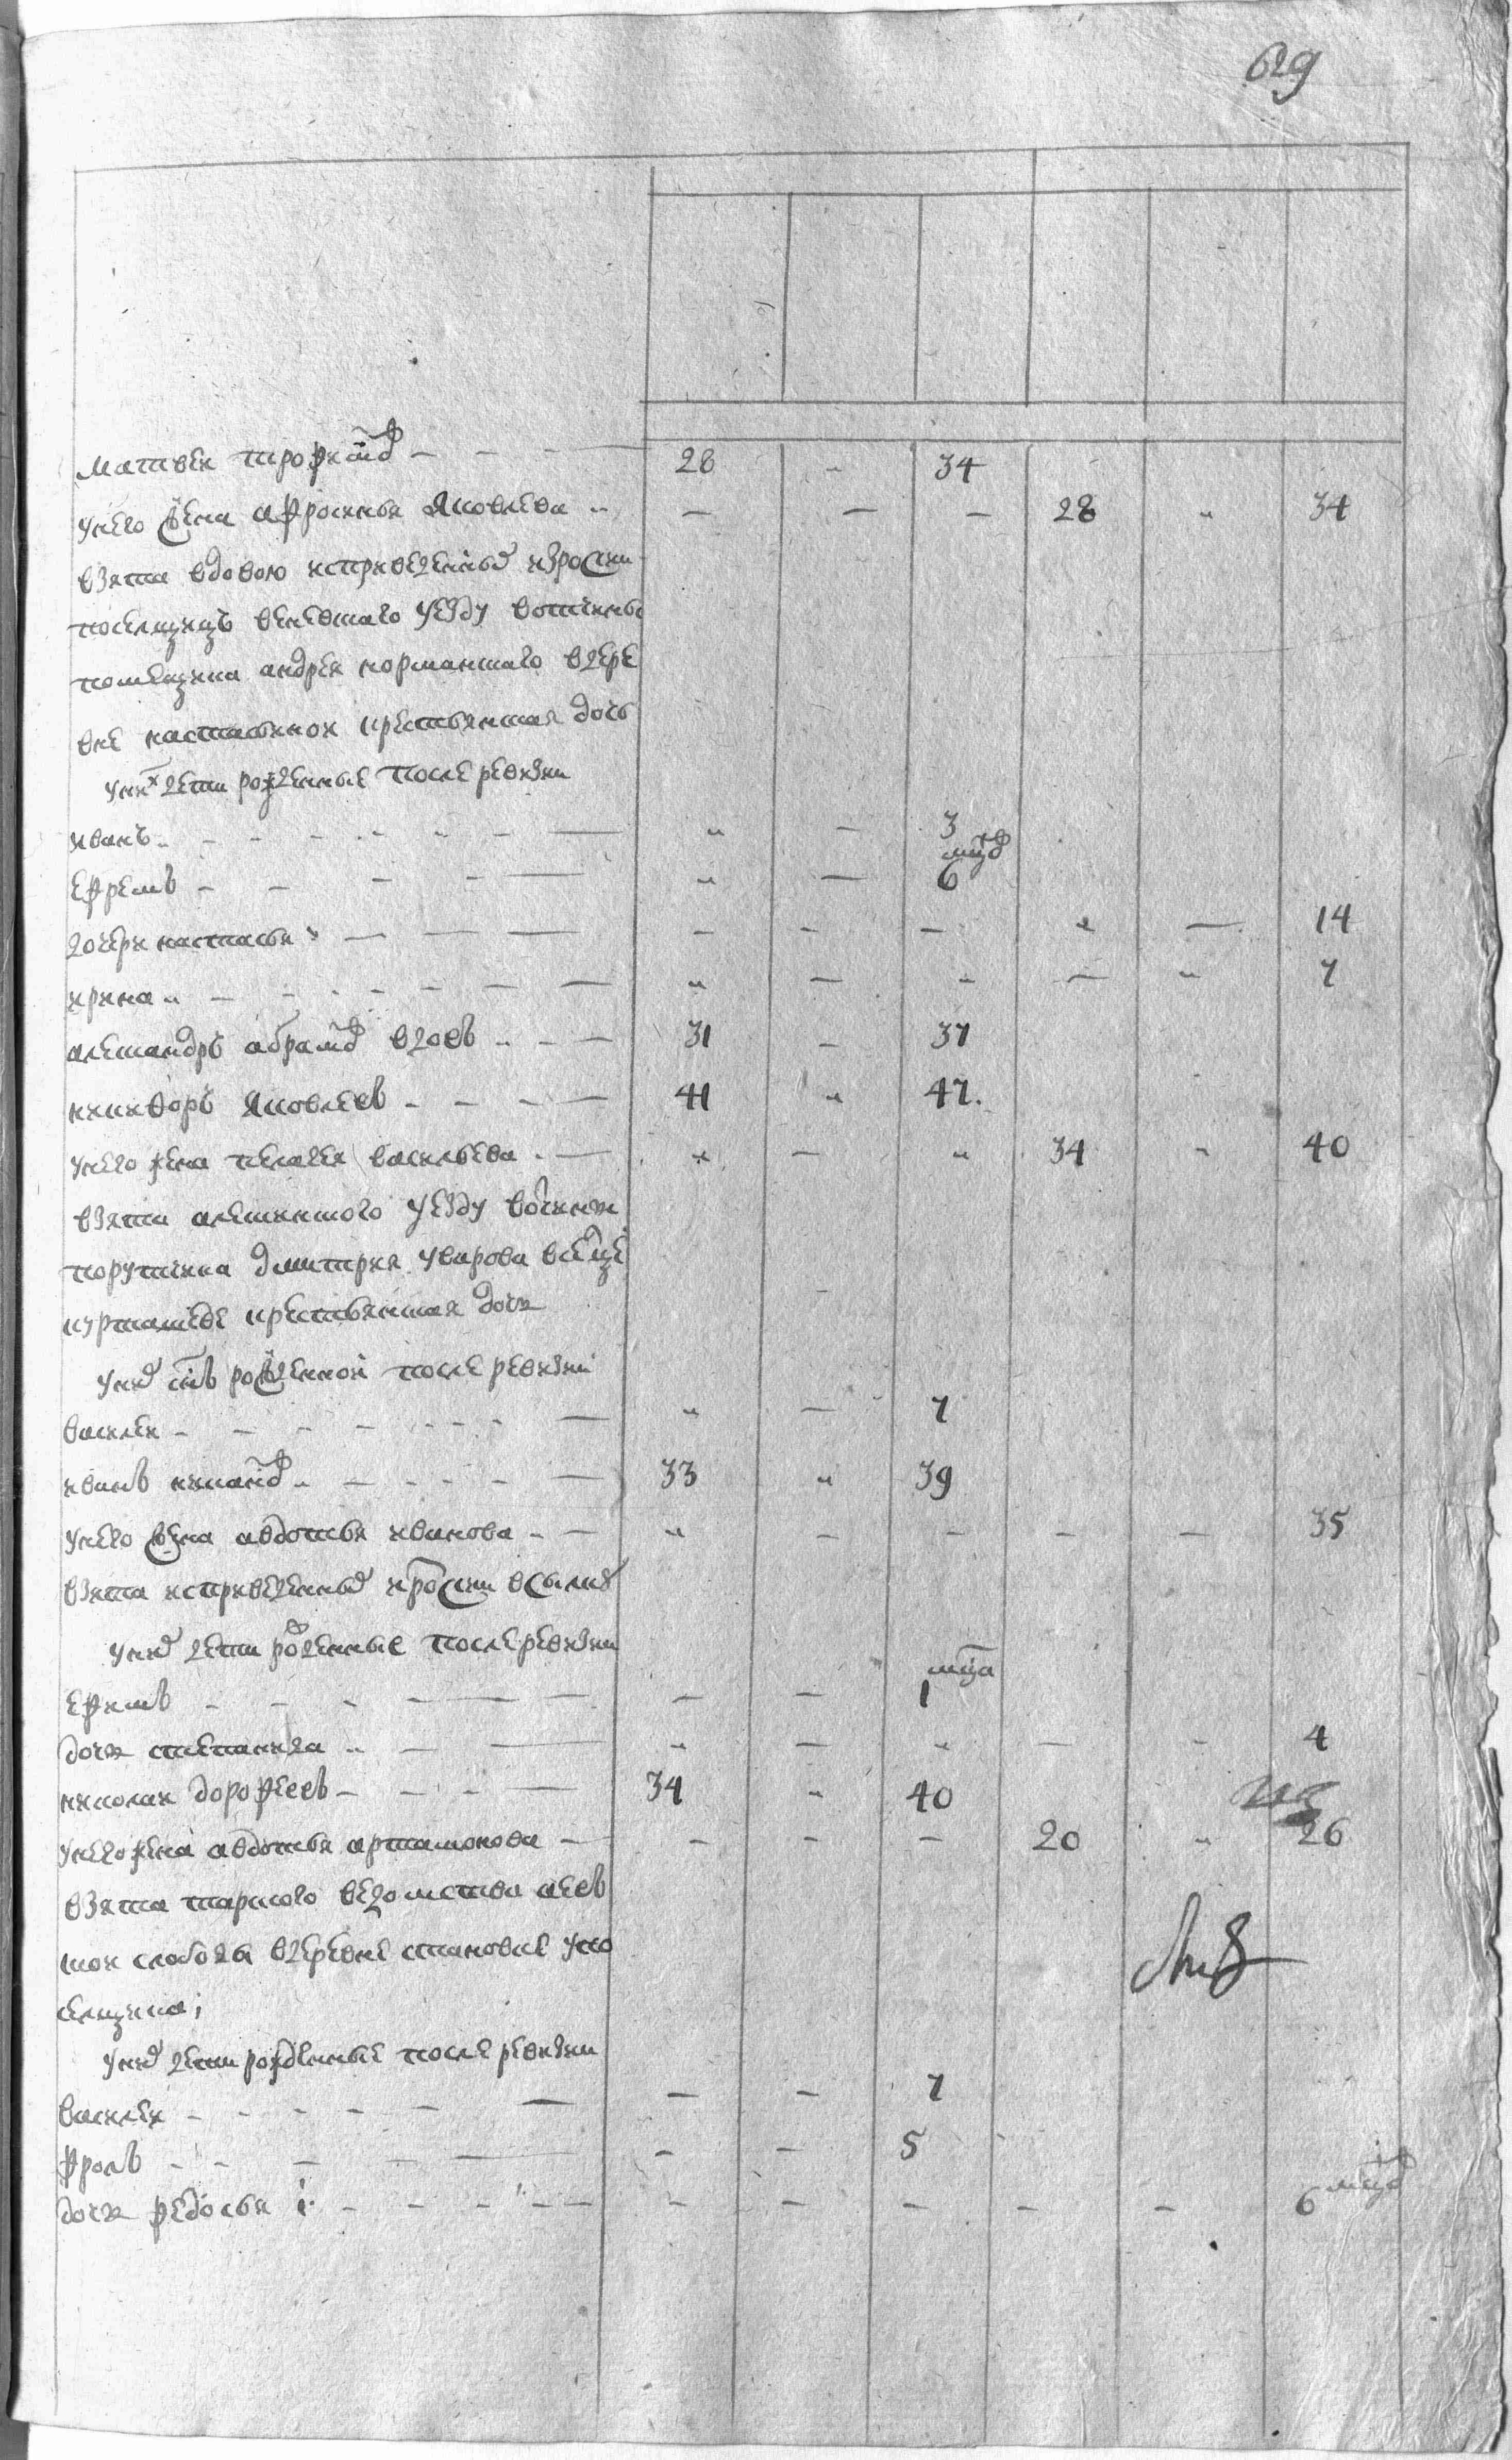 629
матвеи трофимов 28 " 34
унего жена афросинья яковлева " — — — 28 " 34
взята вдовою исприведенных изросии
поселщицъ веневскаго уезду вотчины
помещика андрея корманскаго вдере
вне настасьинои крестьянская дочь
уних дети рожденные после ревизии
иванъ " — 3
ефремъ " — мцов 6
дочери настасья — — — " — 14
ирина " — " — " 7
александръ абрамов вдовъ 31 — 37
никифоръ яковлевъ 41 " 47.
унего жена пелагея васильева " — " 34 " 40
взята алексинского уезду вотчины
порутчика дмитрия уварова вселце
крестьянская дочь
уних снъ рожденнои после ревизии
василеи " — 7
иванъ 33 " 39
унего жена авдотья иванова " — — — — 35
взята исприведенных изросии всылку
уних дети рожденные после ревизии
ефимъ — — мца 1
дочь степанида " — " — " 4
николаи дорофеевъ 34 " 40
унего жена авдотья артамонова — — — 20 " 26
взята тарского ведомства аев
скои слободы вдеревне становке упо
селщика;
уних дети рожденные после ревизии
василеи — — 7
фролъ — — 5
дочь федосья — — — — — мцов 6